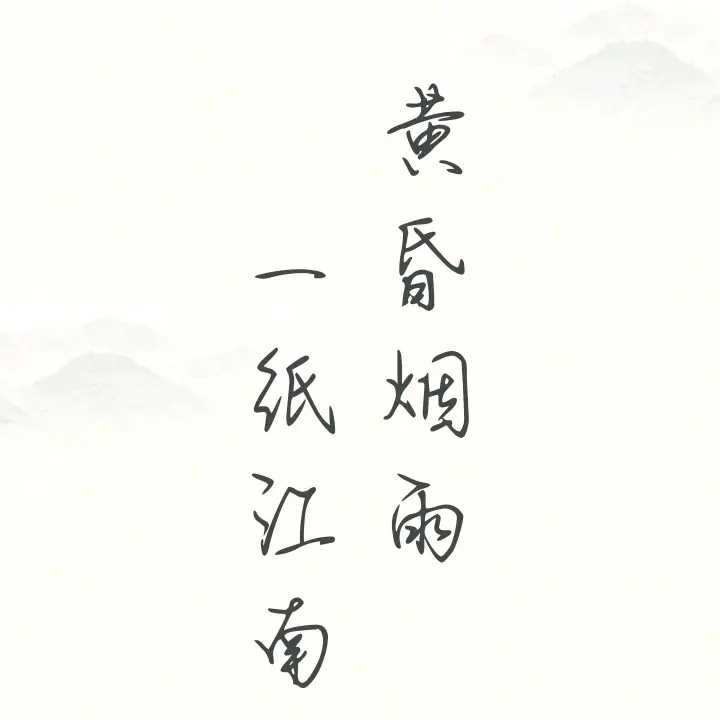 黄昏烟雨
一纸江南